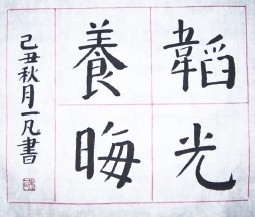 韜光
養晦
己丑秋月一凡書